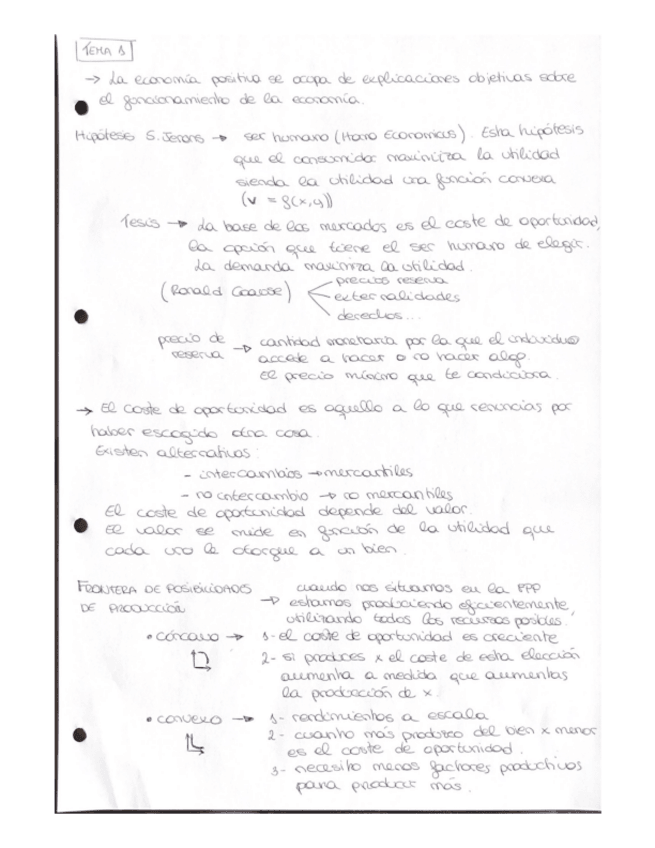 TEMA 1
→ La economía positiva se ocupa de explicaciones objetivas sobre
el funcionamiento de la economía.
Hipótesis S. Jevons → ser humano (Homo Economicus). Esta hipótesis
que el consumidor maximiza la utilidad
siendo la utilidad una función convexa
(v = f(x,y))
Tesis → La base de los mercados es el coste de oportunidad,
la opción que tiene el ser humano de elegir.
La demanda maximiza la utilidad.
(Ronald Coarse)
precios reserva
externalidades
derechos...
precio de reserva → cantidad monetaria por la que el individuo
accede a hacer o no hacer algo.
El precio mínimo que te condiciona.
→ El coste de oportunidad es aquello a lo que renuncias por
haber escogido otra cosa.
Existen alternativas:
- intercambios → mercantiles
- no intercambio → no mercantiles
El coste de oportunidad depende del valor.
El valor se mide en función de la utilidad que
cada uno le otorgue a un bien.
FRONTERA DE POSIBILIDADES
DE PRODUCCIÓN
→ cuando nos situamos en la FPP
estamos produciendo eficientemente,
utilizando todos los recursos posibles.
• CÓNCAVO → 1- el coste de oportunidad es creciente
2- si produces x el coste de esta elección
aumenta a medida que aumentas
la producción de x.
• CONVEXO → 1- rendimientos a escala
2- cuanto más produzco del bien x menor
es el coste de oportunidad.
3- necesito menos factores productivos
para producir más.